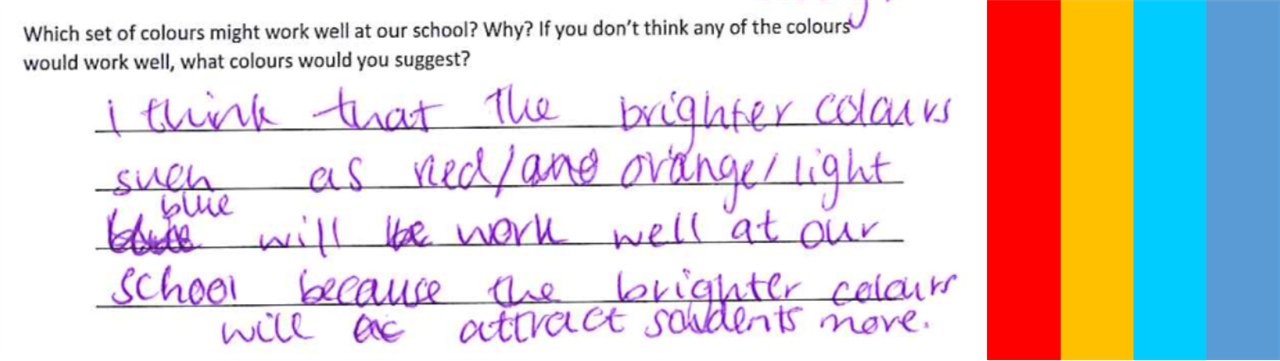 Which set of colours might work well at our school? Why? If you don't think any of the colours
would work well, what colours would you suggest?
i think that the brighter colours
such as red/and orange/light
blue
will be work well at our
school because the brighter colours
will ac attract students more.